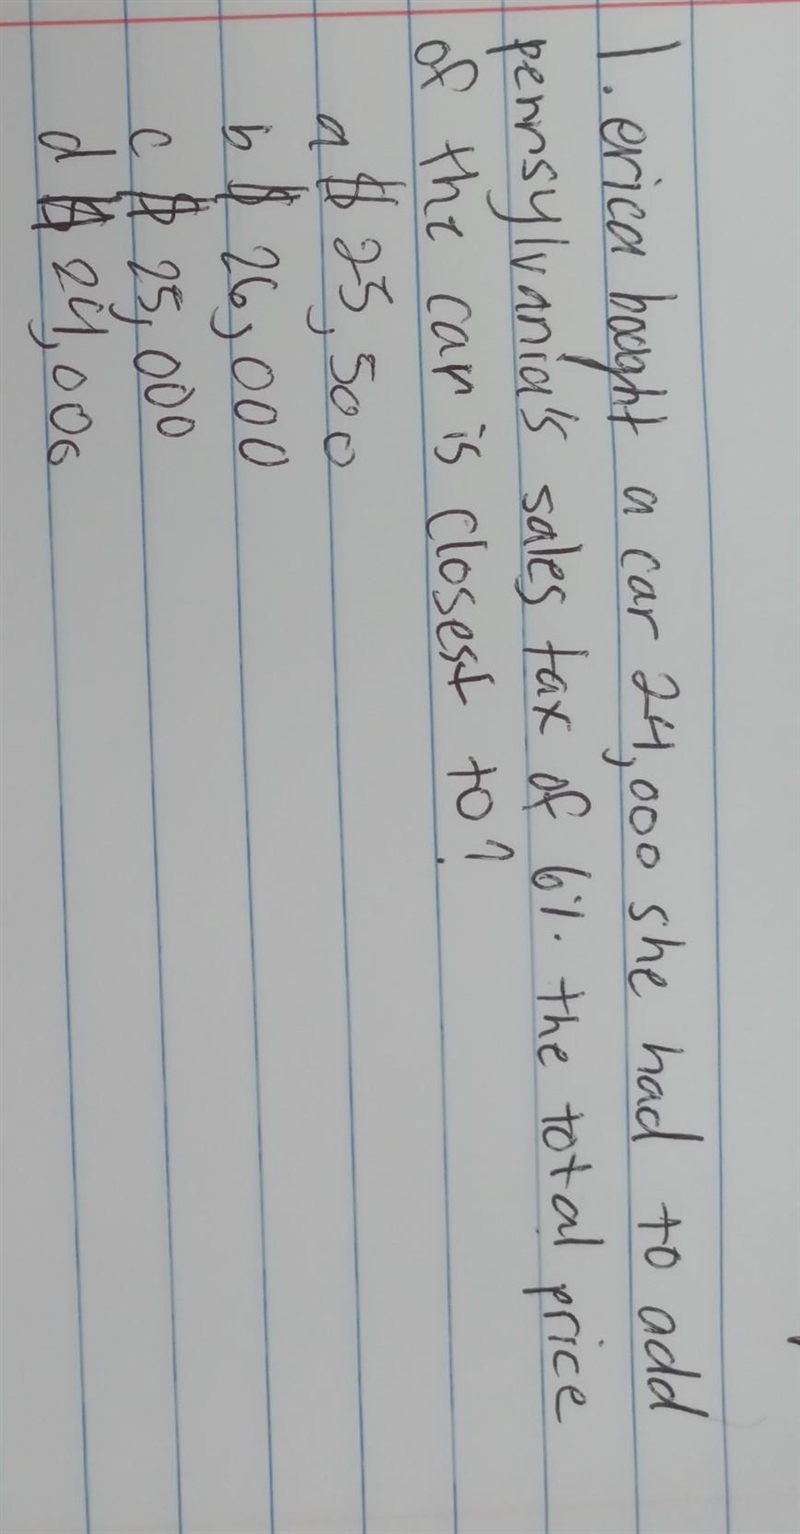 1. erica bought a car 24,000 she had to add
pennsylvania's sales tax of 6%. the total price
of the car is closest to?
a $ 25,500
b $ 26,000
c $ 25,000
d $ 24,000